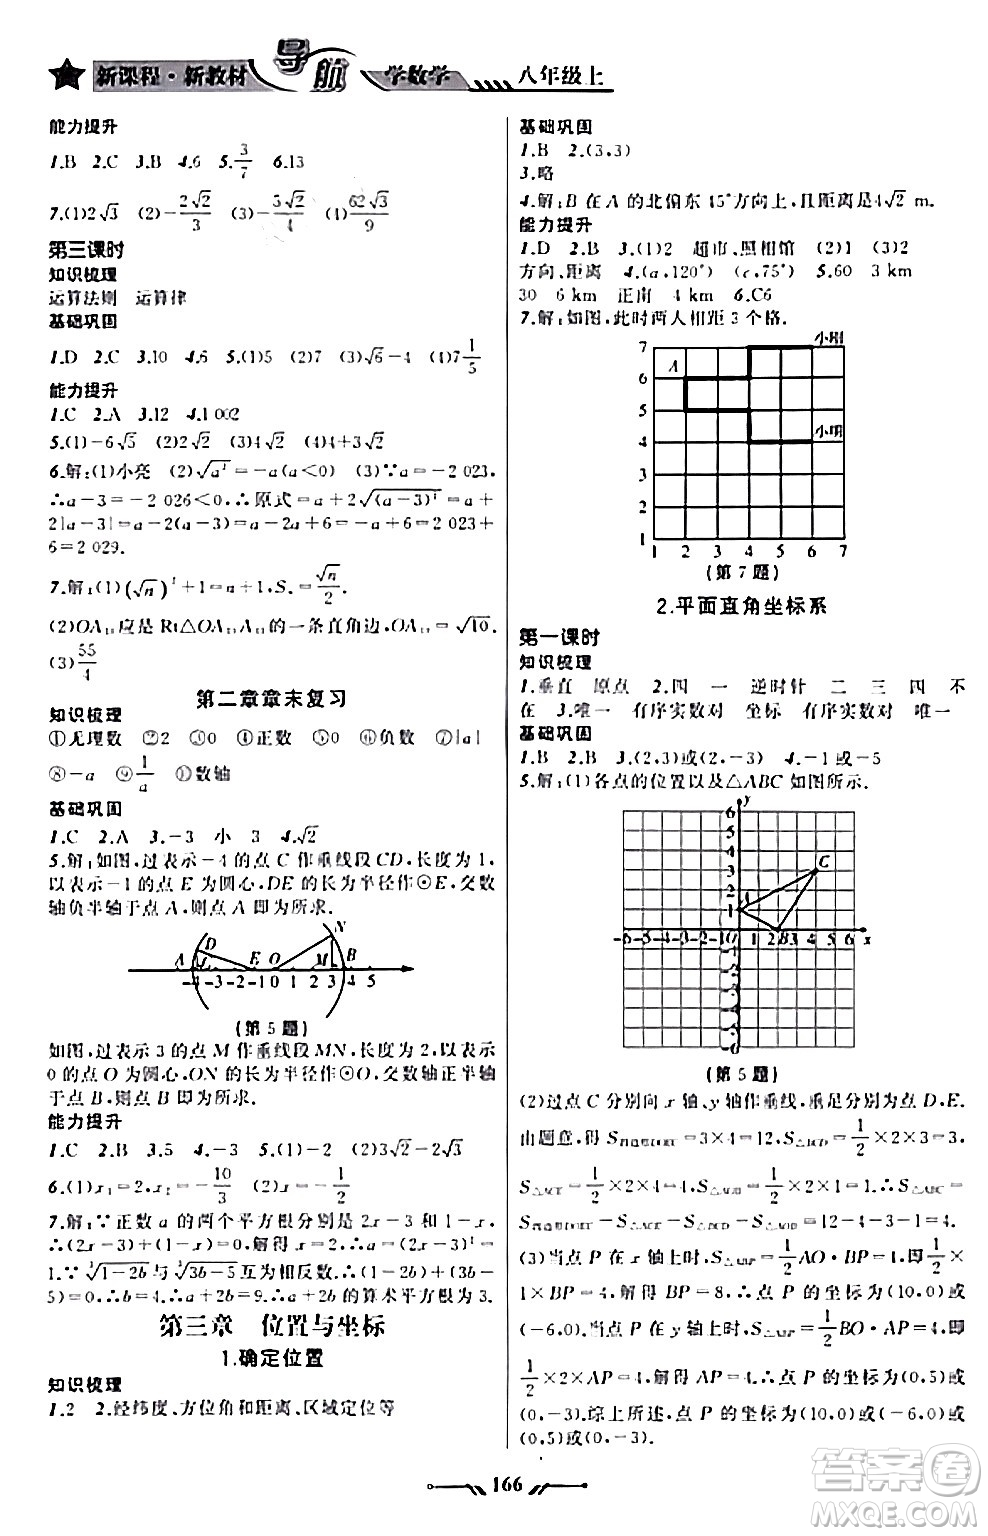 新课程·新教材 导航 学数学 八年级上
能力提升
1.B 2.C 3.B 4.6 5.3/7 6.13
7.(1)2√3 (2)-2√2/3 (3)-5√2/4 (4)62√3/9
第三课时
知识梳理
运算法则 运算律
基础巩固
1.D 2.C 3.10 4.6 5.(1)5 (2)7 (3)√6-4 (4)7 1/5
能力提升
1.C 2.A 3.12 4.1 002
5.(1)-6√5 (2)2√2 (3)4√2 (4)4+3√2
6.解:(1)小亮 (2)√a²=-a(a<0) (3)∵a=-2 023,
∴a-3=-2 026<0,∴原式=a+2√(a-3)²=a+
2|a-3|=a-2(a-3)=a-2a+6=-a+6=2 023+
6=2 029.
7.解:(1)(√n)²+1=n+1,Sₙ=√n/2.
(3)55/4
第二章章末复习
知识梳理
①无理数 ②2 ③0 ④正数 ⑤0 ⑥负数 ⑦|a|
⑧-a ⑨1/a ⑩数轴
基础巩固
1.C 2.A 3.-3 小 3 4.√2
5.解:如图,过表示-4的点C作垂线段CD,长度为1,
以表示-1的点E为圆心,DE的长为半径作⊙E,交数
轴负半轴于点A,则点A即为所求.
D N
A E O M B
-4-3-2-1 0 1 2 3 4 5
(第5题)
如图,过表示3的点M作垂线段MN,长度为2,以表示
0的点O为圆心,ON的长为半径作⊙O,交数轴正半轴
于点B,则点B即为所求.
能力提升
1.C 2.B 3.5 4.-3 5.(1)2 (2)3√2-2√3
6.(1)x₁=2,x₂=-10/3 (2)x=-1
7.解:∵正数a的两个平方根分别是2x-3和1-x,
∴(2x-3)+(1-x)=0,解得x=2,∴a=(2x-3)²=
1.∵∛1-2b与∛3b-5互为相反数,∴(1-2b)+(3b-
5)=0,解得b=4,∴a+2b=9,∴a+2b的算术平方根为3.
第三章 位置与坐标
1.确定位置
知识梳理
1.2 2.经纬度、方位角和距离、区域定位等
基础巩固
1.B 2.(3,3)
3.略
4.解:B在A的北偏东45°方向上,且距离4√2 m.
能力提升
1.D 2.B 3.(1)2 超市、照相馆 (2)1 (3)2
方向、距离 4.(a,120°) (c,75°) 5.60 3 km
30 6 km 正南 4 km 6.C6
7.解:如图,此时两人相距3个格.
7 小刚
6 A
5
4 小明
3
2
1
1 2 3 4 5 6 7
(第7题)
2.平面直角坐标系
第一课时
知识梳理
1.垂直 原点 2.四 一 逆时针 二 三 四 不
在 3.唯一 有序实数对 坐标 有序实数对 唯一
基础巩固
1.B 2.B 3.(2,3)或(2,-3) 4.-1或-5
5.解:(1)各点的位置以及△ABC如图所示.
y
6
5
4
3 C
2
1 A
-6-5-4-3-2-1 O 1 2B3 4 5 6 x
(第5题)
(2)过点C分别向x轴、y轴作垂线,垂足分别为点D、E.
由题意,得S四边形DOEC=3×4=12,S△BCD=1/2×2×3=3,
S△ACE=1/2×2×4=4,S△AOB=1/2×2×1=1.∴S△ABC=
S四边形DOEC-S△ACE-S△BCD-S△AOB=12-4-3-1=4.
(3)当点P在x轴上时,S△ABP=1/2AO·BP=4,即1/2×
1×BP=4,解得BP=8,∴点P的坐标为(10,0)或
(-6,0).当点P在y轴上时,S△ABP=1/2BO·AP=4,即
1/2×2×AP=4,解得AP=4,∴点P的坐标为(0,5)或
(0,-3).综上所述,点P的坐标为(10,0)或(-6,0)或
(0,5)或(0,-3).
166
作业精灵
MXQE.COM